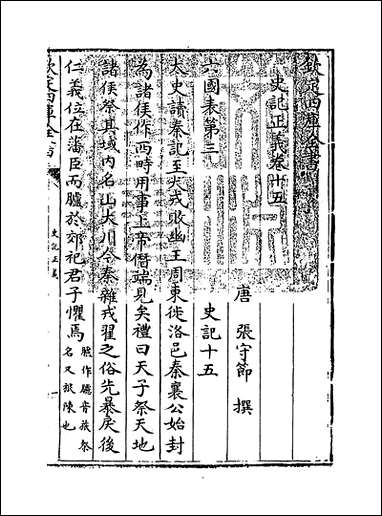 欽定四庫全書
史記正義卷十五
唐 張守節 撰
六國表第三 史記十五
太史讀秦記至犬戎敗幽王周東徙洛邑秦襄公始封
為諸侯作西畤用事上帝僭端見矣禮曰天子祭天地
諸侯祭其域内名山大川今秦雜戎翟之俗先暴戾後
仁義位在藩臣而臚於郊祀君子懼焉 臚作臚音旅祭
名又旅陳也
欽定四庫全書
史記正義